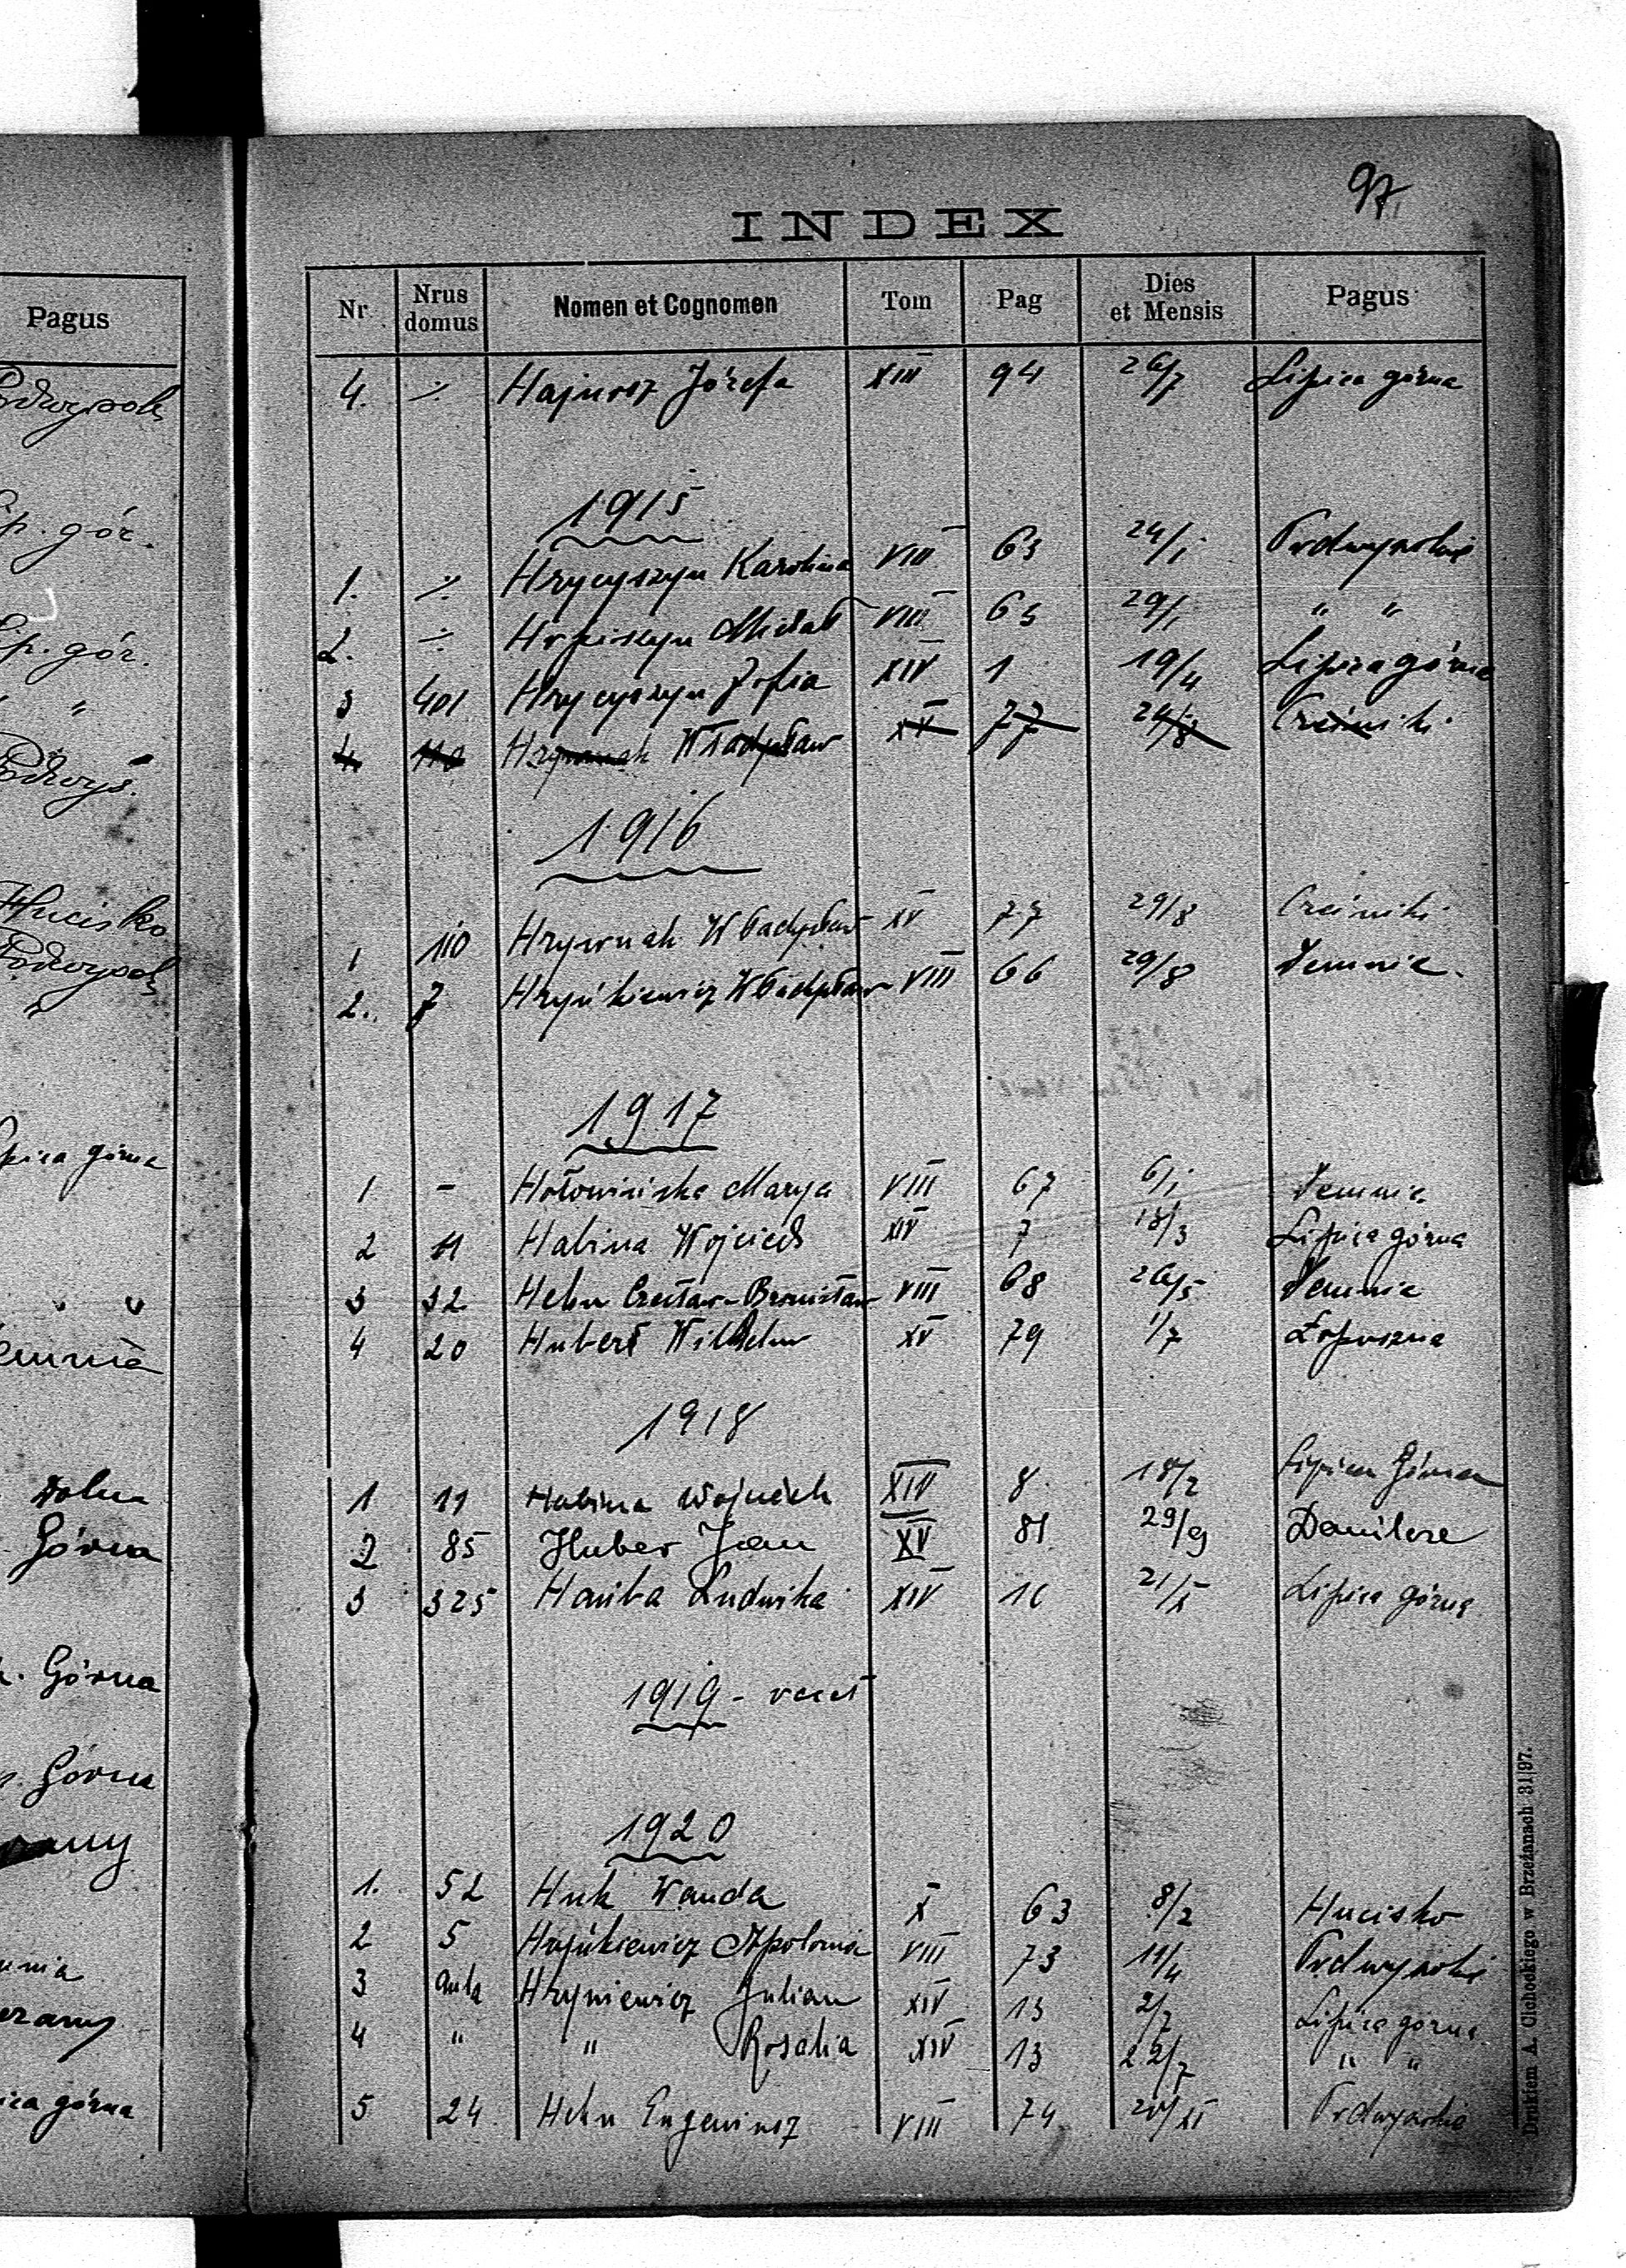 97
INDEX
Pagus
Nr Nrus domus Nomen et Cognomen Tom Pag Dies et Mensis Pagus
4. ./. Hajnosz Józefa XIII 94 26/7 Lipica górna
1915
1. ./. Hrycyszyn Karolina VIII 63 24/1 Podwysokie
2. ./. Michał VIII 65 29/1 " "
3 401 Hrycyszyn Zofia XIV 1 19/4 Lipica górna
4. 110 Hrywnak Władysław XV 77 29/8
1916
1 110 Hrywnak Władysław XV 77 29/8
2. 7 Hryńkiewicz Władysław VIII 66 29/8 Demnia.
1917
1 - Hołowińska Marya VIII 67 6/1 Demnia
2 11 Habina Wojciech XIV 7 18/3 Lipica górna
3 32 Hehn Czesław-Bronisław VIII 68 26/5 Demnia
4 20 Hubert Wilhelm XV 79 1/7 Łopuszna
1918
1 11 Habina Wojciech XIV 8 18/2 Lipica Górna
2 85 Huber Jan XV 81 29/9
3 325 Ludwika XIV 10/X Lipica górna
1919 - vacat
1920
1. 52 Huk Wanda X 63 8/2 Hucisko
2 5 Hryńkiewicz Apolonia VIII 73 11/4 Podwysokie
3 aula Hryniewicz Julian XIV 13 2/7 Lipica górna
4 " " Rosalia XIV 13 22/7 " "
5 24 Hehn Eugeniusz VIII 74 20/XI Podwysokie
Podwysok
Lip. gór.
Lip. gór.
" "
Podwys.
Hucisko
Podwysok
"
Lipica górna
" "
Demnia
Dolna
Górna
Górna
Górna
Lipica górna
Drukiem A. Cichockiego w Brzeżanach 31|97.